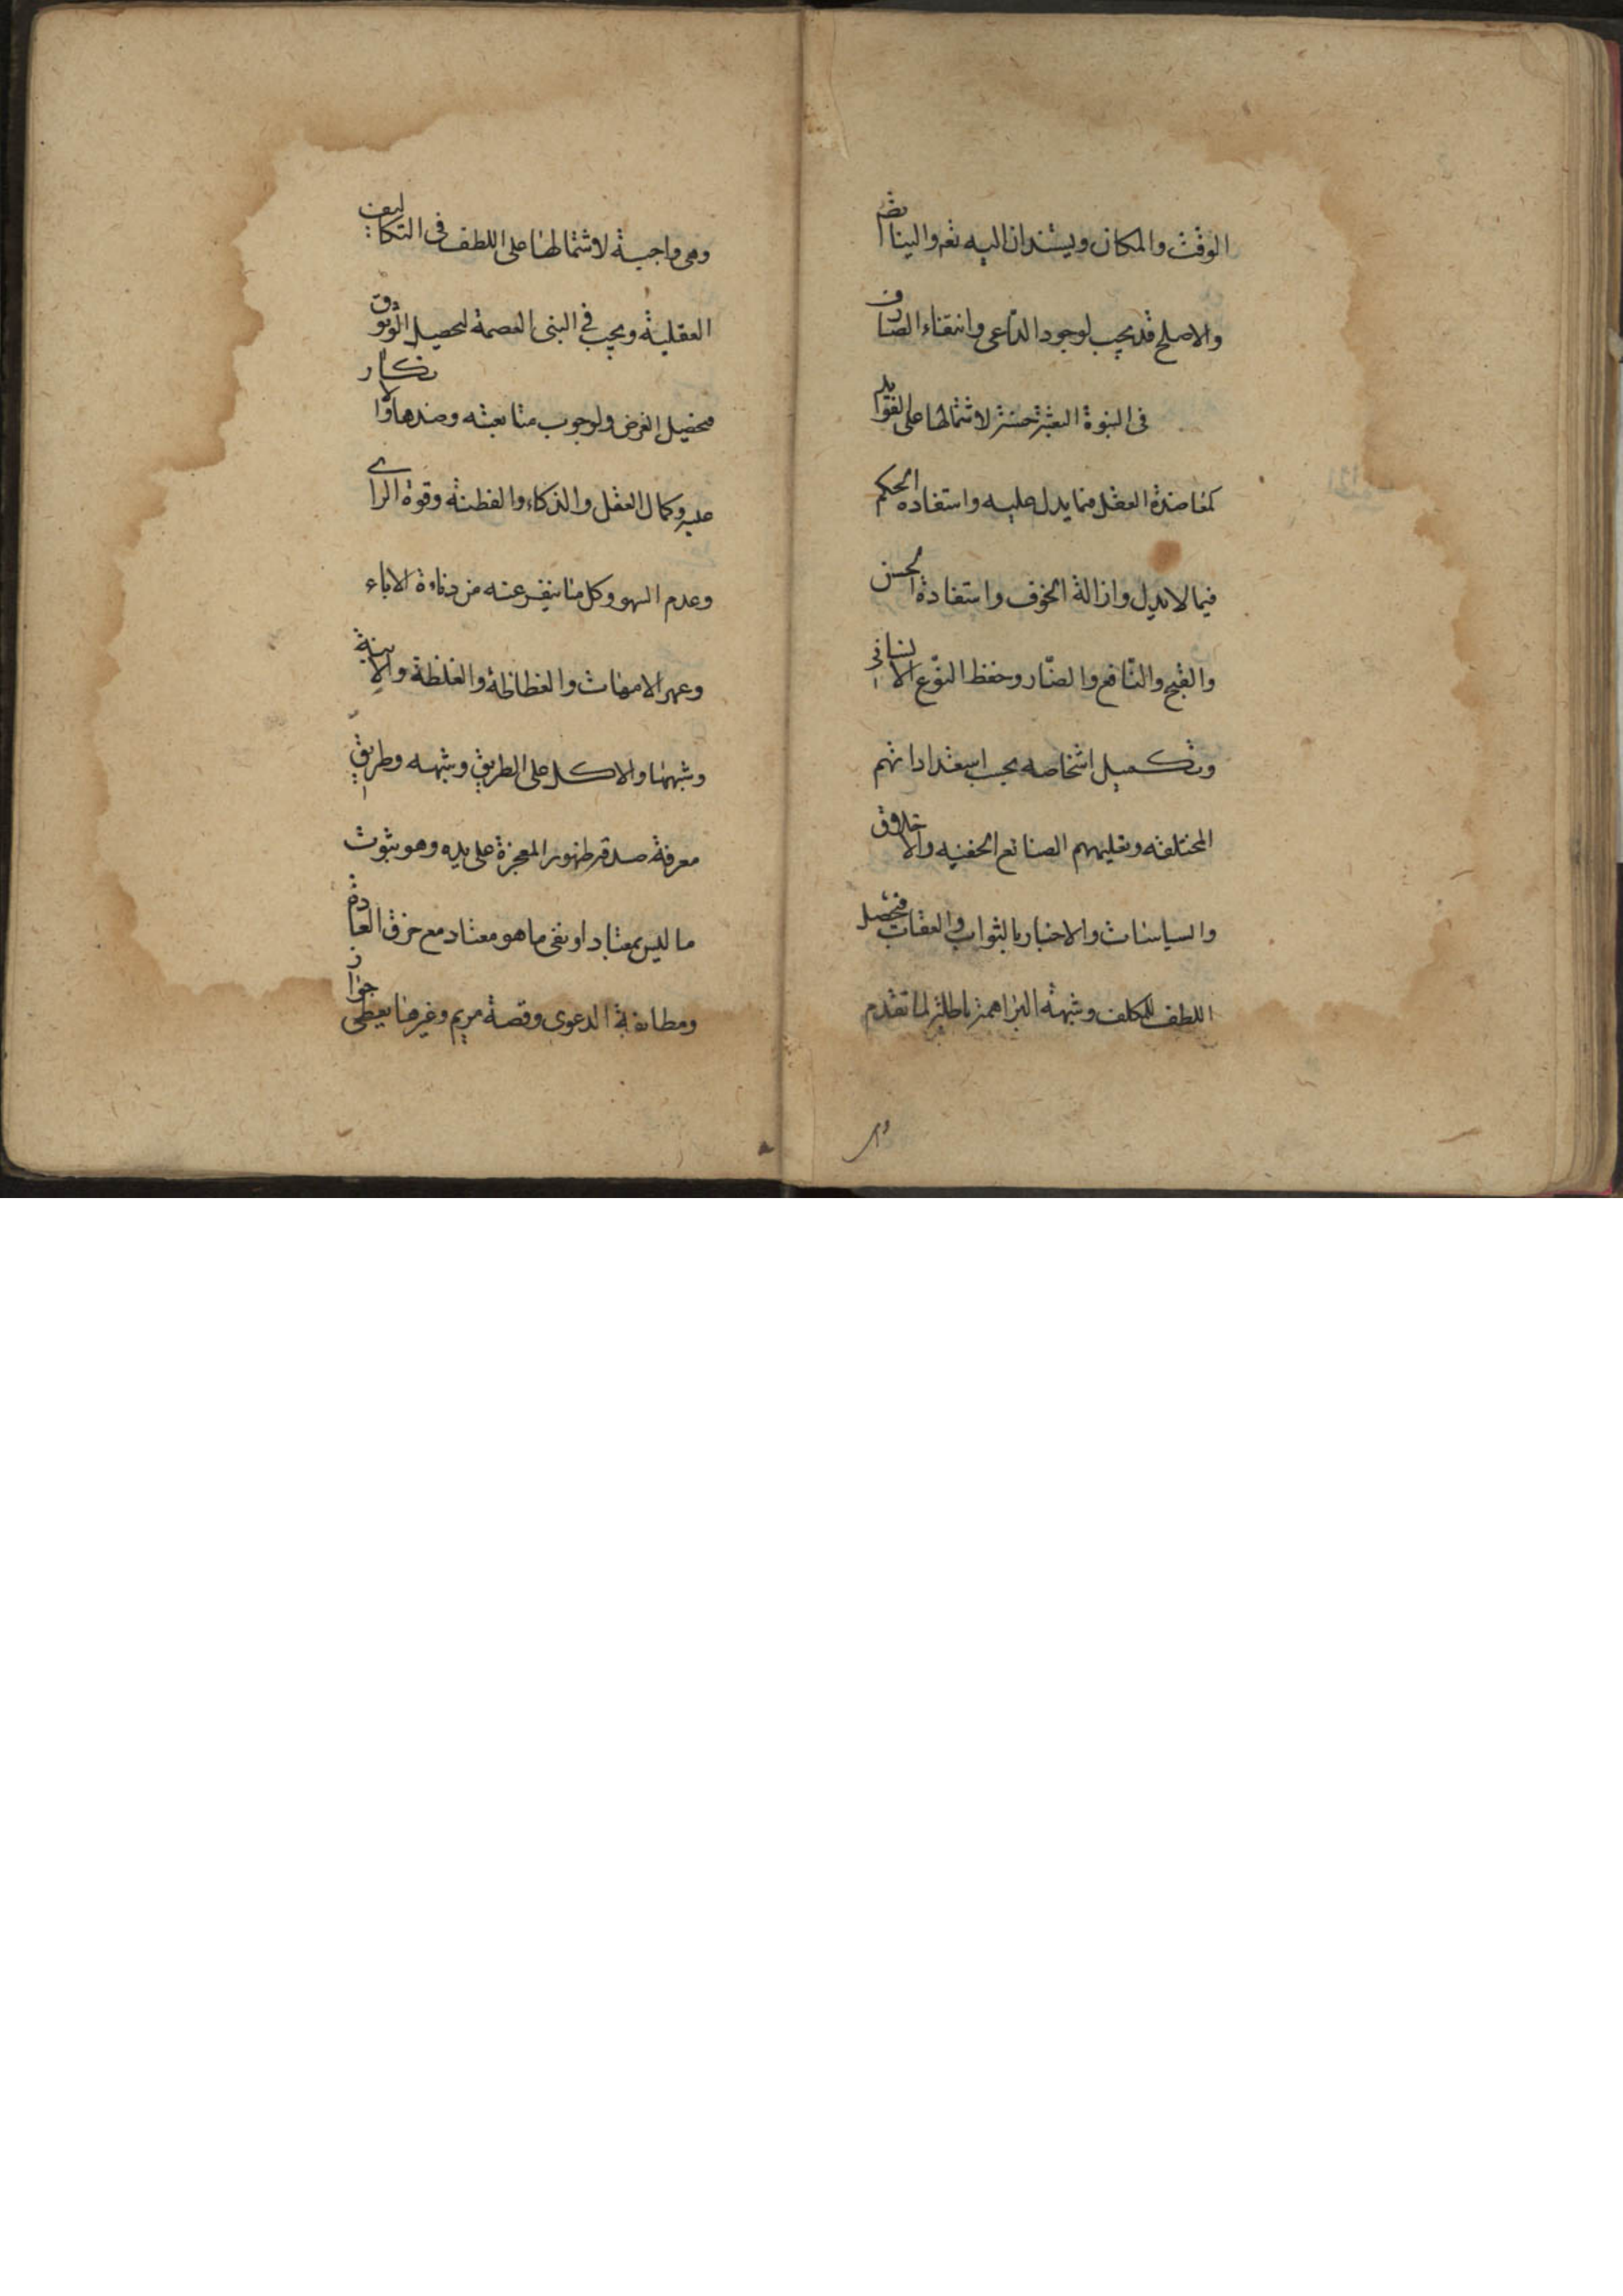 الوقت والمكان ويستندان اليه تعم والينا ايضم
والاصلح قد يجب لوجود الدّاعى وانتفاء الصّارف
فى النبوة البعثة حسنة لاشتمالها على الفوايد
كمعاضدة العقل فيما يدل عليه واستفادة الحكم
فيما لا يدل وازالة الخوف واستفادة الحسن
والقبح والنّافع والضّار وحفظ النوّع الانسانى
وتكميل اشخاصه بحسب استعداداتهم
المختلفه وتعليمهم الصنايع الخفيه والاخلاق
والسياسات والاخبار بالثواب والعقاب فيحصل
اللطف للمكلف وشبهة البراهمة باطلة لما تقدم
وهى واجبة لاشتمالها على اللطف فى التكاليف
العقلية ويجب فى النبى العصمة لتحصيل الوثوق
فيحصل الغرض ولوجوب متابعته وضدها والانكار
عليه وكمال العقل والذكاء والفطنة وقوة الراى
وعدم السهو وكل ما ينفر عنه من دناءة الاباء
وعهر الامهات والفظاظة والغلظة والابنة
وشبهها والاكل على الطريق وشبهه وطريق
معرفة صدقه ظهور المعجزة على يده وهو ثبوت
ما ليس بمعتاد او نفى ما هو معتاد مع خرق العادة
ومطابقة الدعوى وقصة مريم وغيرها يعطى جواز